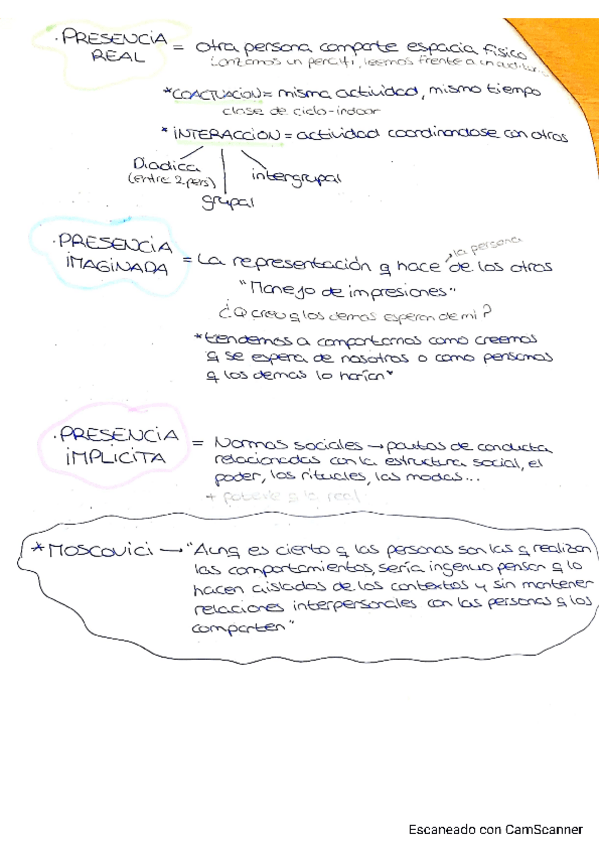 · PRESENCIA
REAL = otra persona comparte espacia físico
Lanzamos un , leemos frente a un
*COACTUACION = misma actividad, mismo tiempo
clase de ciclo-indoor
* INTERACCION = actividad coordinandose con otros
Diadica
(entre 2 pers)
grupal
intergrupal
· PRESENCIA
IMAGINADA = La representación q hace la persona de los otros
"Manejo de impresiones"
¿Q creo q los demas esperan de mi?
*tendemos a comportarnos como creemos
q se espera de nosotros o como pensamos
q los demas lo harían*
· PRESENCIA
IMPLICITA = Normas sociales → pautas de conducta
relacionadas con la estructura social, el
poder, los rituales, las modas...
+ potente q la real
* MOSCOVICI → "Aunq es cierto q las personas son las q realizan
los comportamientos, sería ingenuo pensar q lo
hacen aislados de los contextos y sin mantener
relaciones interpersonales con las personas q los
comparten"
Escaneado con CamScanner